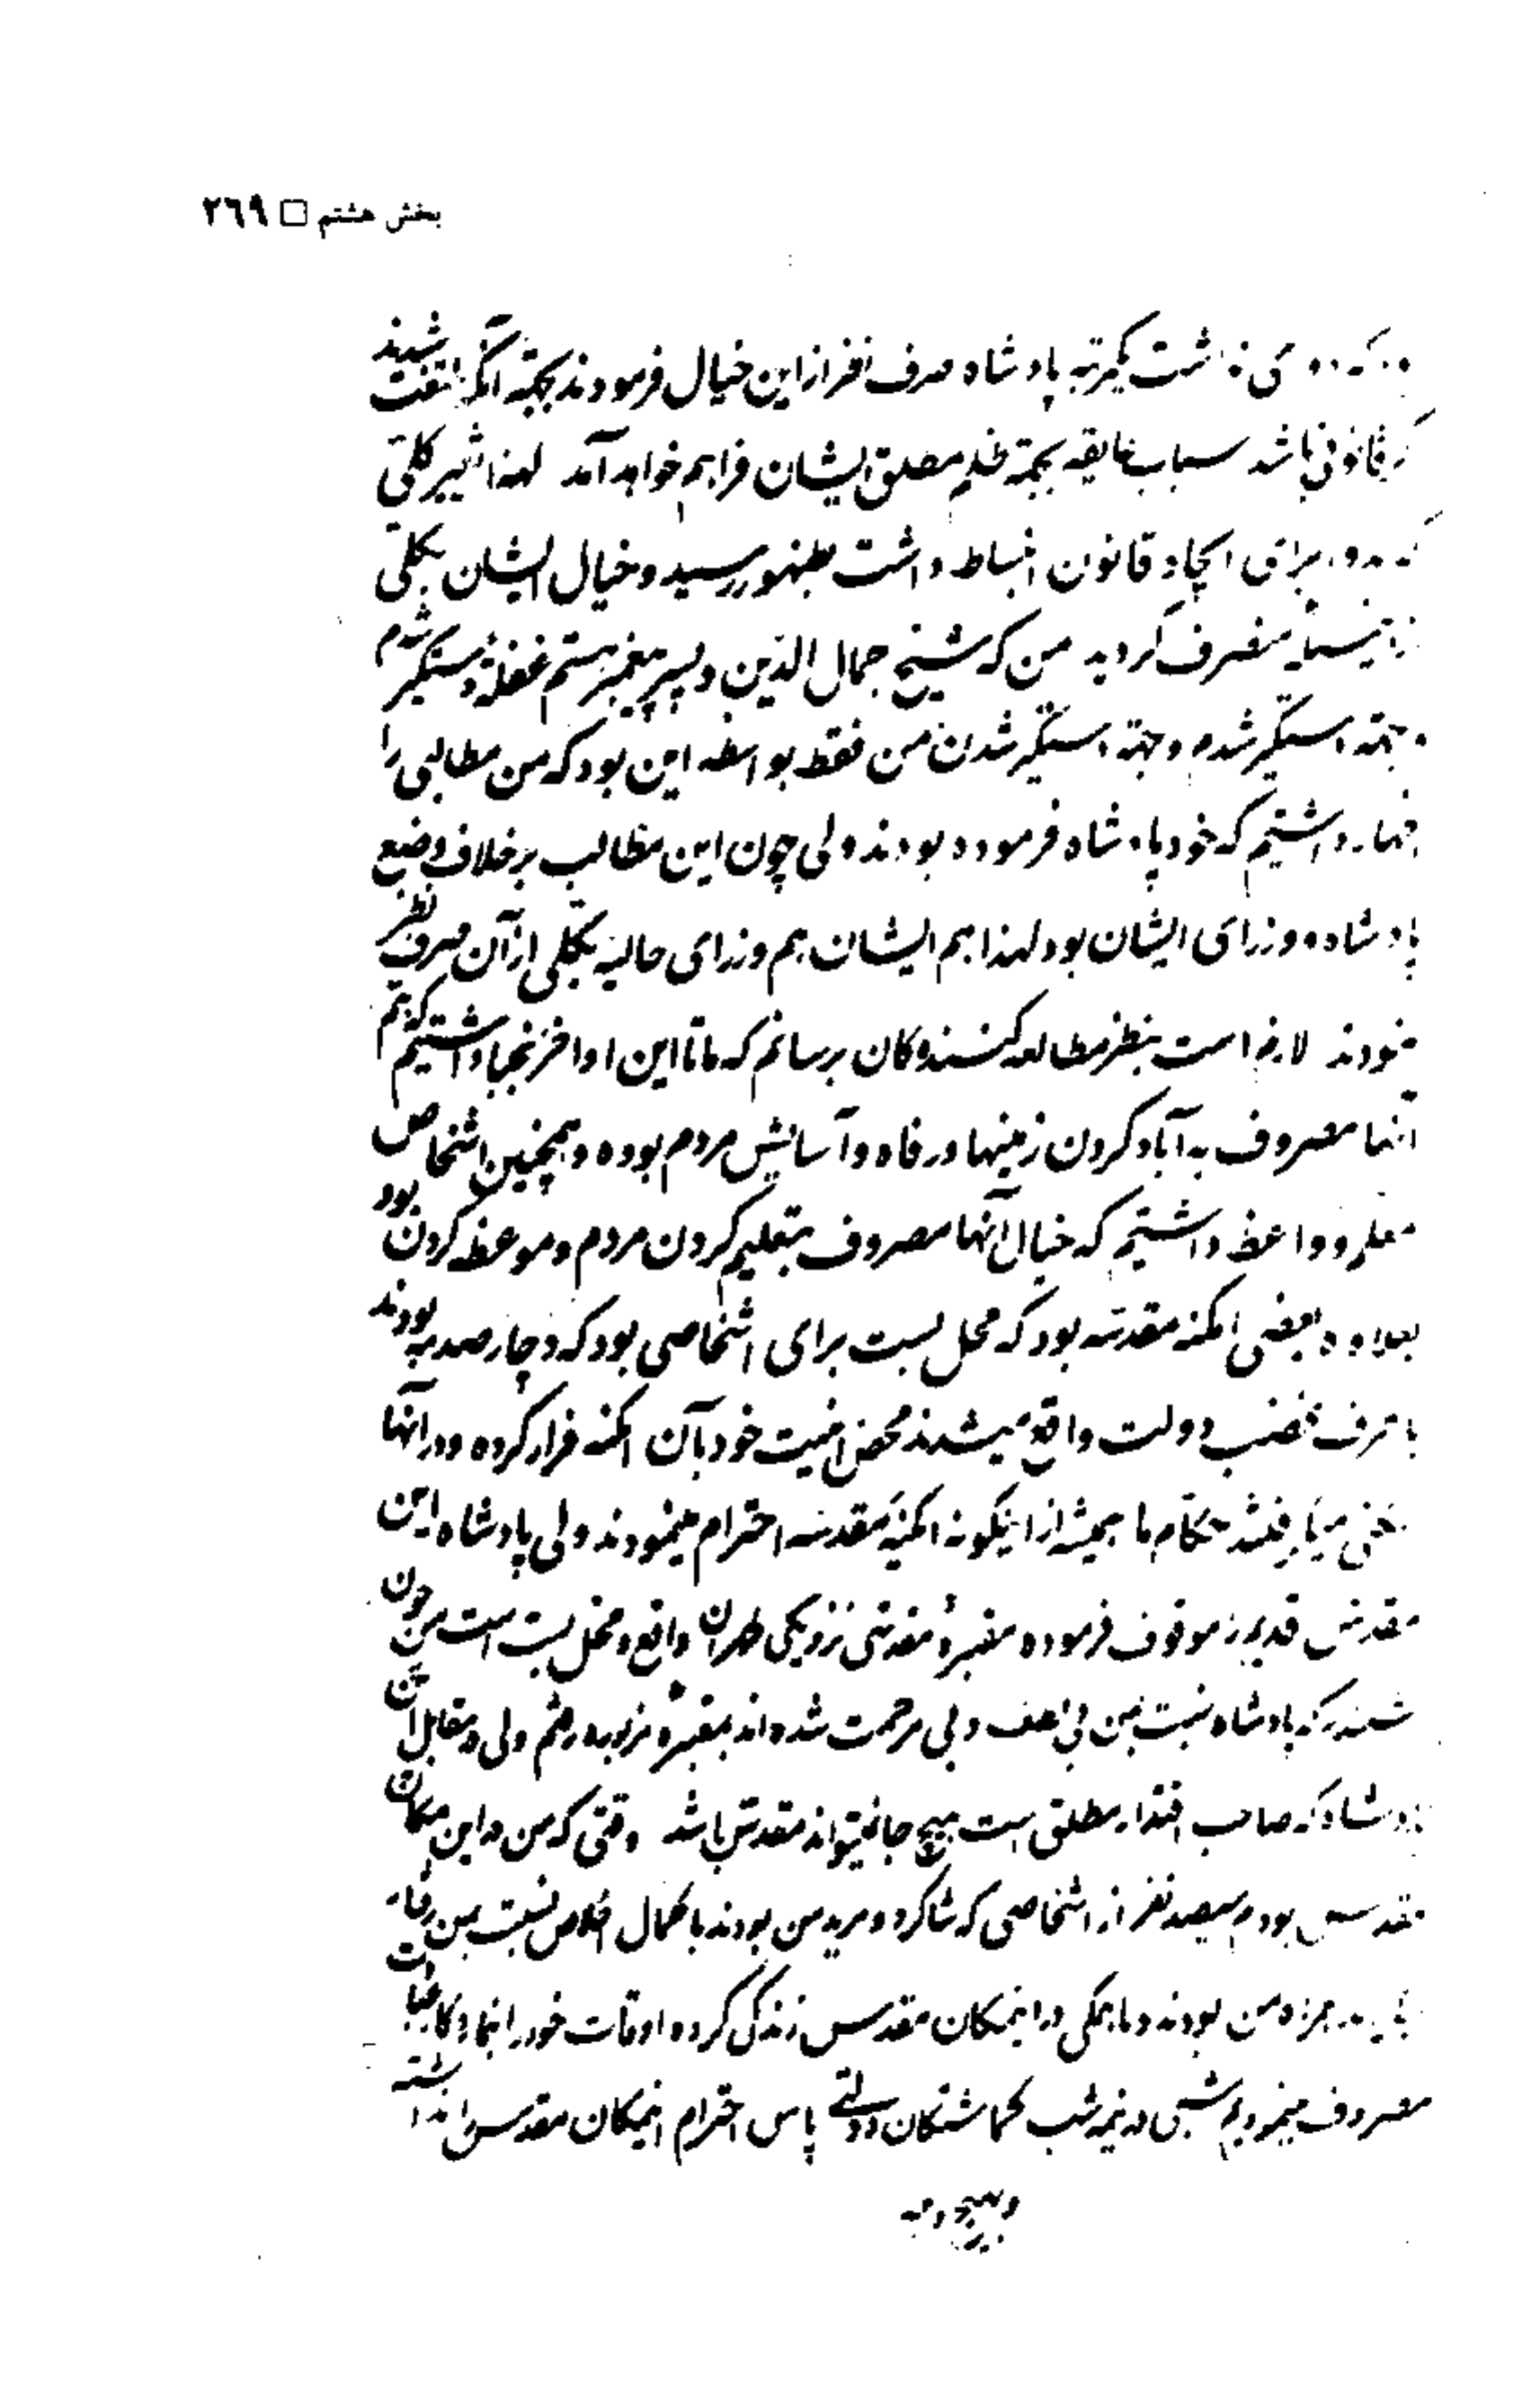 بخش هشتم □ ٢٦٩
داشت یکمرتبه پادشاه صرف نظر از این خیال فرمودند بجهة آنکه ملتفت شدند
قانونی باشد اسباب عایقه بجهة ظلم مطلق ایشان فراهم خواهد آمد لهذا تغییر کلی
برای ایجاد قانون انبساط داشت بظهور رسید و خیال ایشان بکلی
منصرف گردید من که شیخ جمال الدین و پسر پیغمبر هستم غفلة دستگیر شدم
دستگیر شدم و جهة دستگیر شدن من فقط بواسطه این بود که من مطالبی را
اظهار داشتم که خود پادشاه فرموده بودند ولی چون این مطالب برخلاف وضع
پادشاه و وزرای ایشان بود لهذا هم ایشان هم وزرای حالیه بکلی از آن صرف نظر
نمودند لازم است بنظر مطالعه کنندگان برسانم که ما تا این اواخر نجبا داشتیم که هم
آنها مصروف به آباد کردن زمینها و رفاه و آسایش مردم بوده و همچنین اشخاص
معلم و واعظ داشتیم که خیال آنها مصروف بتعلیم کردن مردم و موعظه کردن بود
بعلاوه بعضی امکنه مقدسه بود که محل بست برای اشخاصی بود که دچار صدمه بودند
یا طرف غضب دولت واقع میشدند محض امنیت خود بآن امکنه فرار کرده و در آنها
میگرفتند حکام ما همیشه از اینگونه امکنه مقدسه احترام مینمودند ولی پادشاه این
مقدس قدیم را موقوف فرموده مقبرۀ مقدسی نزدیکی طهران واقع و محل بست است من چون
شنیدم که پادشاه نسبت بمن بی لطف و بی مرحمت شده اند بمقبرۀ مزبوره رفتم ولی در مقابل آن
پادشاه که صاحب اقتدار مطلق است هیچ جا نمیتواند مقدس باشد وقتی که من در این مکان
مقدس بودم سیصد نفر از اشخاصی که شاگرد و مرید من بودند با کمال اخلاص نسبت بمن
همراه من بودند و ما همگی در اینمکان مقدس زندگی کرده و اوقات خود را
مصروف مینمودیم شبی در نیمه شب گماشتگان دولتی پاس احترام اینمکان مقدس را نداشته